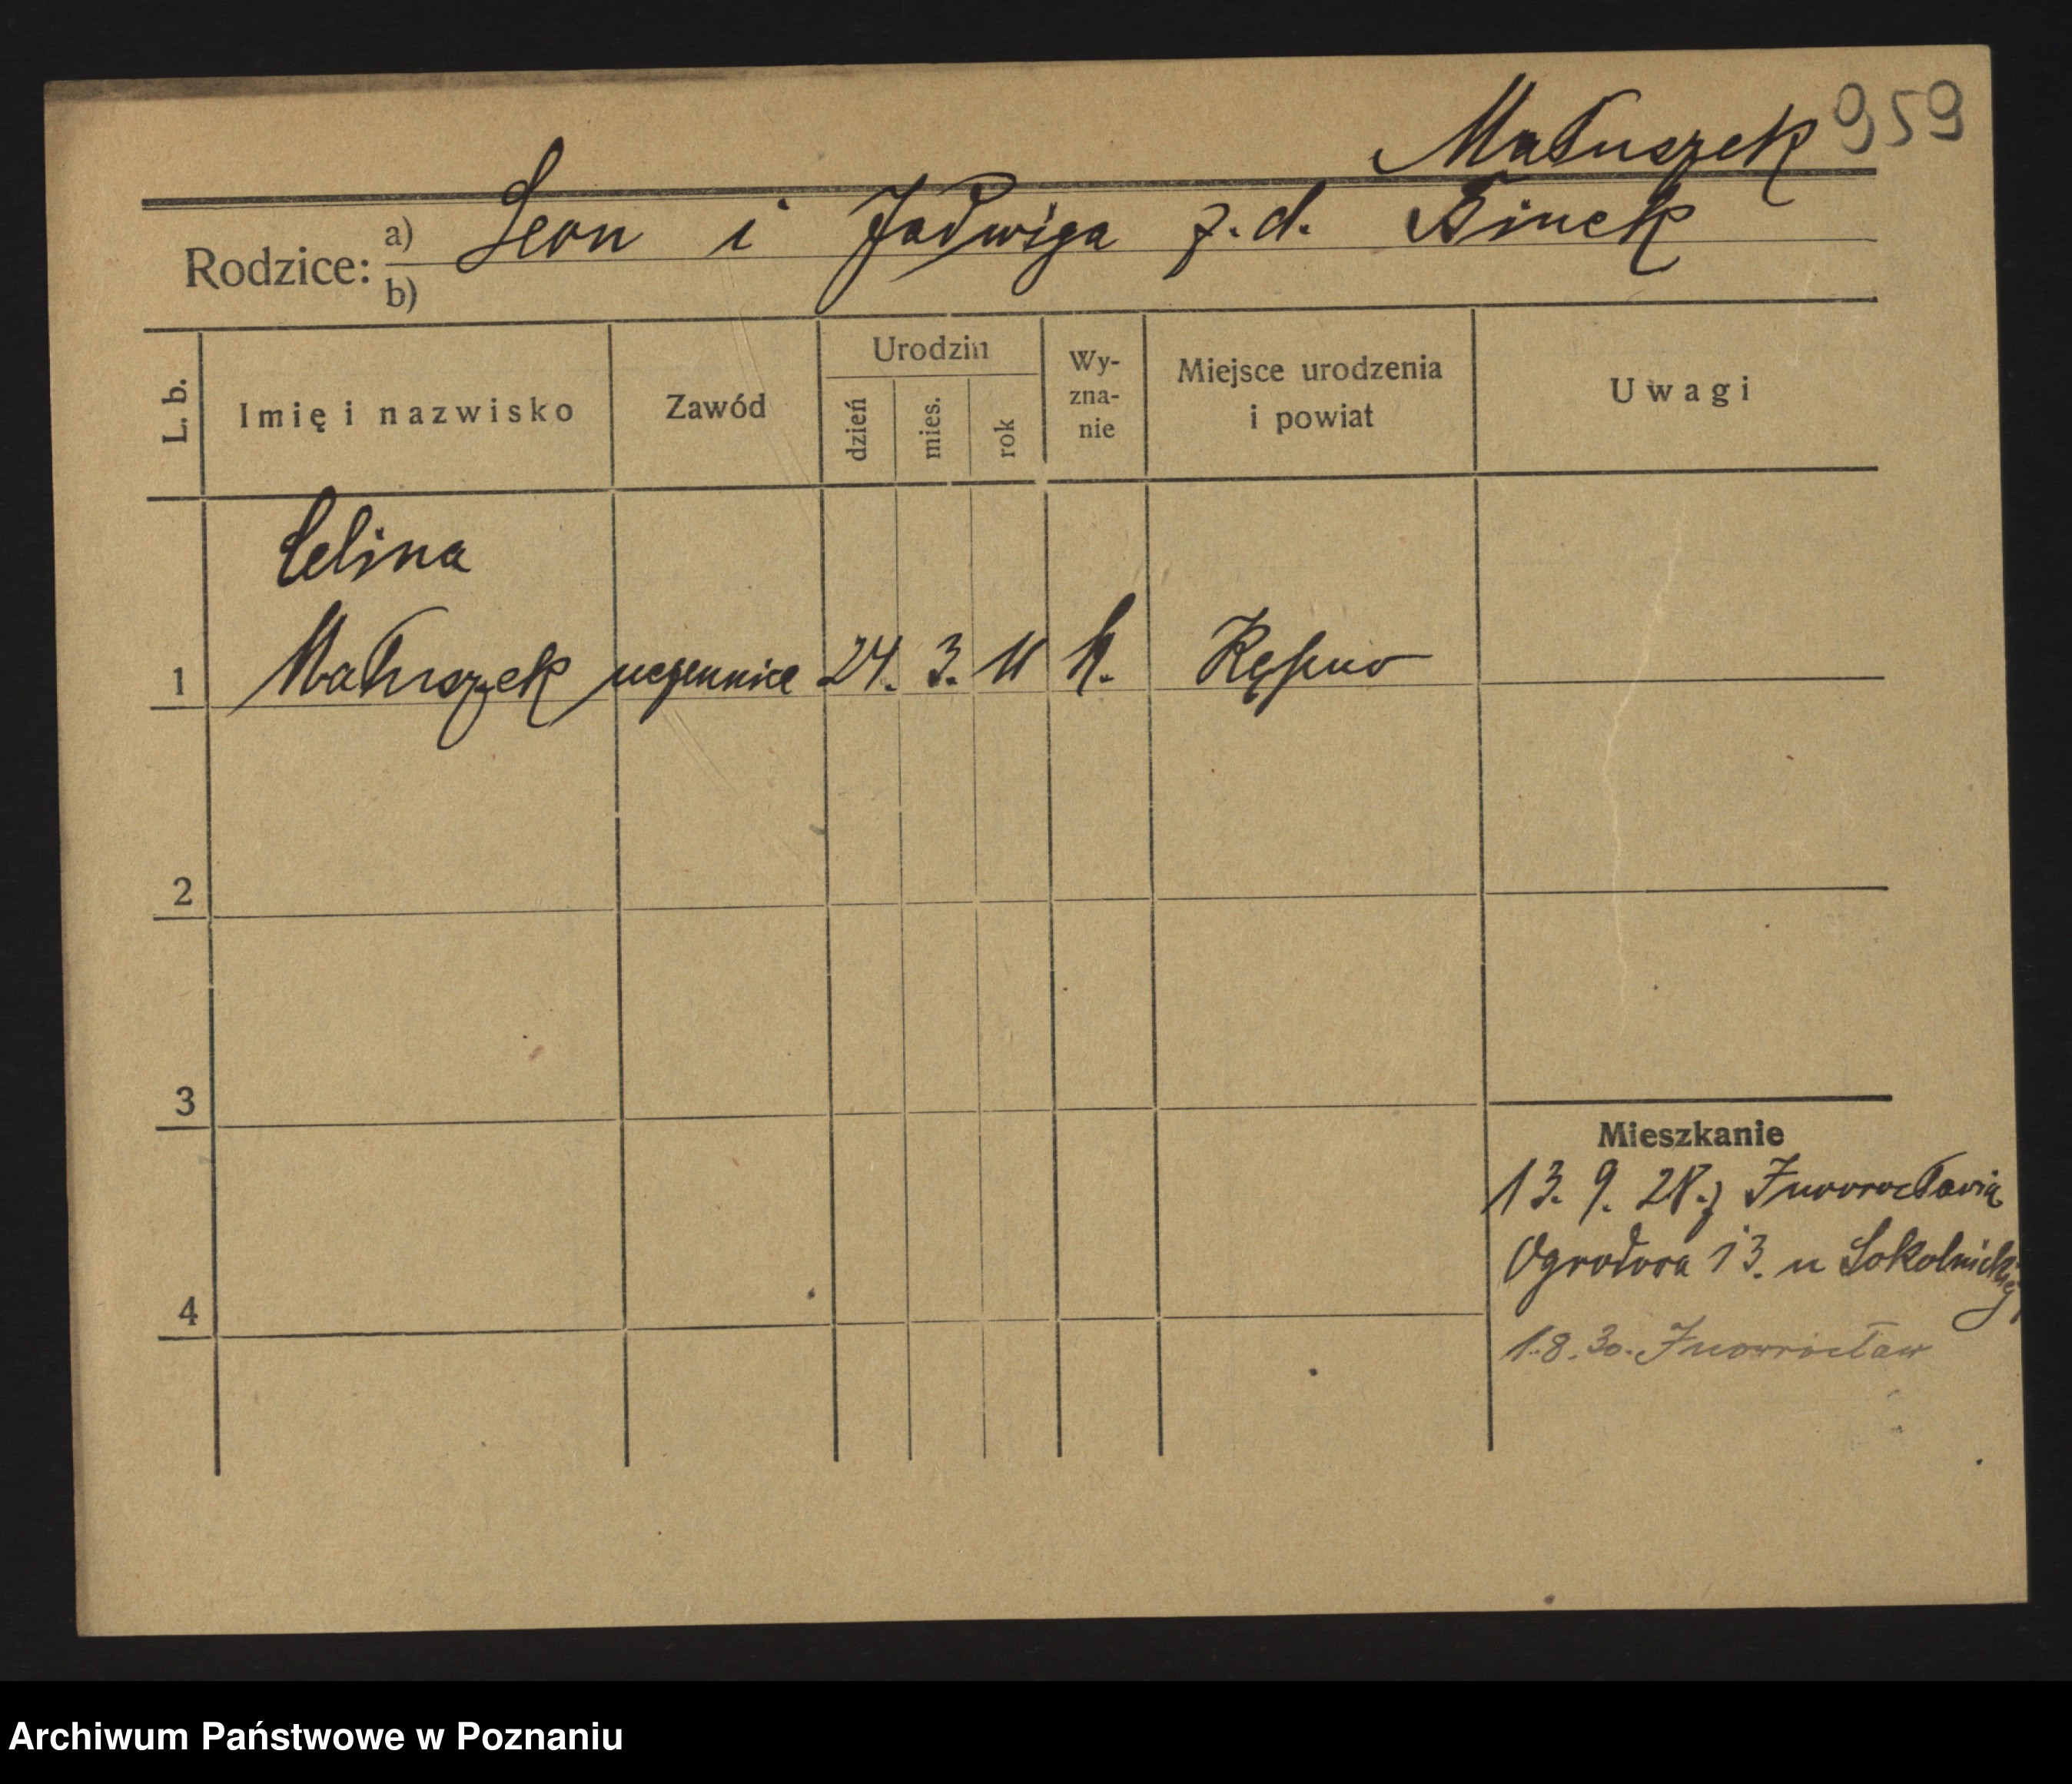 Matuszek 959
Rodzice: a) Leon i Jadwiga z. d. Binek
b)
L. b.
Imię i nazwisko
Zawód
Urodzin
dzień
mies.
rok
Wy-
zna-
nie
Miejsce urodzenia
i powiat
Uwagi
Celina
1 Matuszek uczennica 24. 3. 11 k. Kępno
2
3
Mieszkanie
13. 9. 28. z Inowrocławia
Ogrodowa 13. u Sokolnickiej
4
1.8.30. Inowrocław
Archiwum Państwowe w Poznaniu